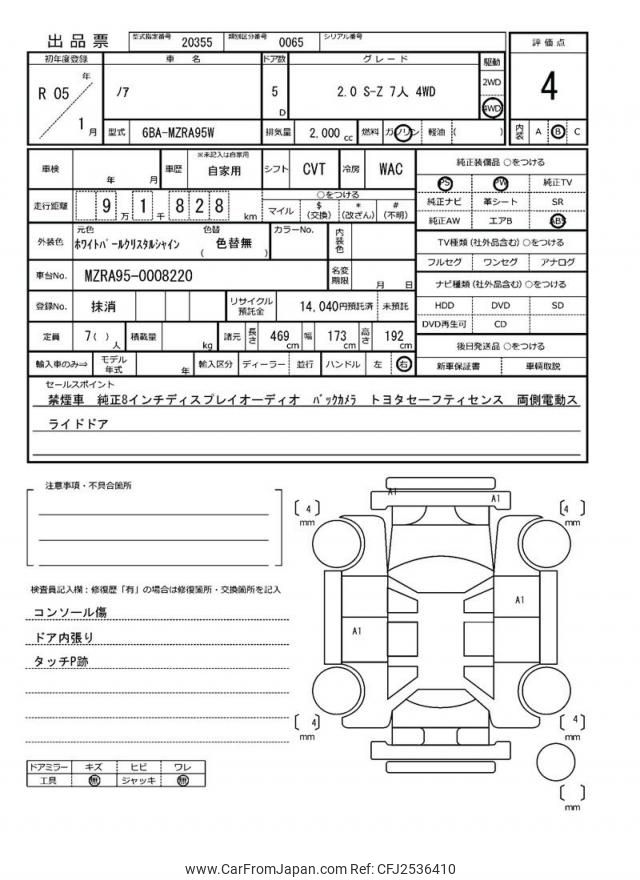 出品票 型式指定番号 20355 類別区分番号 0065 シリアル番号
評価点
4
初年度登録 車 名 ドア数 グレード 駆動
R 05 年 1 月
ﾉｱ
5 D
2.0 S-Z 7人 4WD
2WD
4WD
型式 6BA-MZRA95W 排気量 2,000 cc 燃料 ガソリン 軽油 ( )
内装 A B C
車検 年 月 車歴 ※未記入は自家用 自家用 シフト CVT 冷房 WAC
走行距離 9 万 1 千 8 2 8 km
○をつける
マイル $ (交換) * (改ざん) # (不明)
外装色 元色 ﾎﾜｲﾄﾊﾟｰﾙｸﾘｽﾀﾙｼｬｲﾝ 色替 ( 色替無 ) カラーNo. 内装色
車台No. MZRA95-0008220 名変期限 月 日
登録No. 抹消 リサイクル預託金 14,040円預託済 未預託
定員 7( ) 人 積載量 kg 諸元 長さ 469 cm 幅 173 cm 高さ 192 cm
輸入車のみ⇒ モデル年式 年 輸入区分 ディーラー 並行 ハンドル 左 右
純正装備品 ○をつける
PS PW 純正TV
純正ナビ 革シート SR
純正AW エアB ABS
TV種類 (社外品含む) ○をつける
フルセグ ワンセグ アナログ
ナビ種類 (社外品含む) ○をつける
HDD DVD SD
DVD再生可 CD
後日発送品 ○をつける
新車保証書 車輌取説
セールスポイント
禁煙車 純正8インチディスプレイオーディオ ﾊﾞｯｸｶﾒﾗ トヨタセーフティセンス 両側電動ス
ライドドア
注意事項・不具合箇所
検査員記入欄：修復歴「有」の場合は修復箇所・交換箇所を記入
コンソール傷
ドア内張り
タッチP跡
ドアミラー キズ ヒビ ワレ
工具 無 ジャッキ 無
A1 A1
[ 4 ] mm [ 4 ] mm
A1
A1
[ 4 ] mm [ 4 ] mm
[ ] mm
www.CarFromJapan.com Ref: CFJ2536410